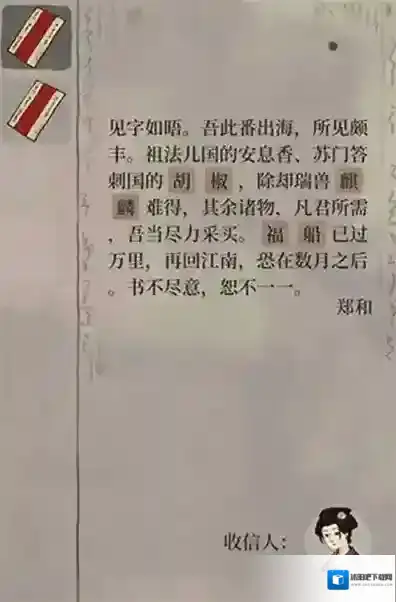 见字如晤。吾此番出海，所见颇
丰。祖法儿国的安息香、苏门答
刺国的 胡 椒 ，除却瑞兽 麒
麟 难得，其余诸物、凡君所需
，吾当尽力采买。 福 船 已过
万里，再回江南，恐在数月之后
。书不尽意，恕不一一。
郑和
收信人：